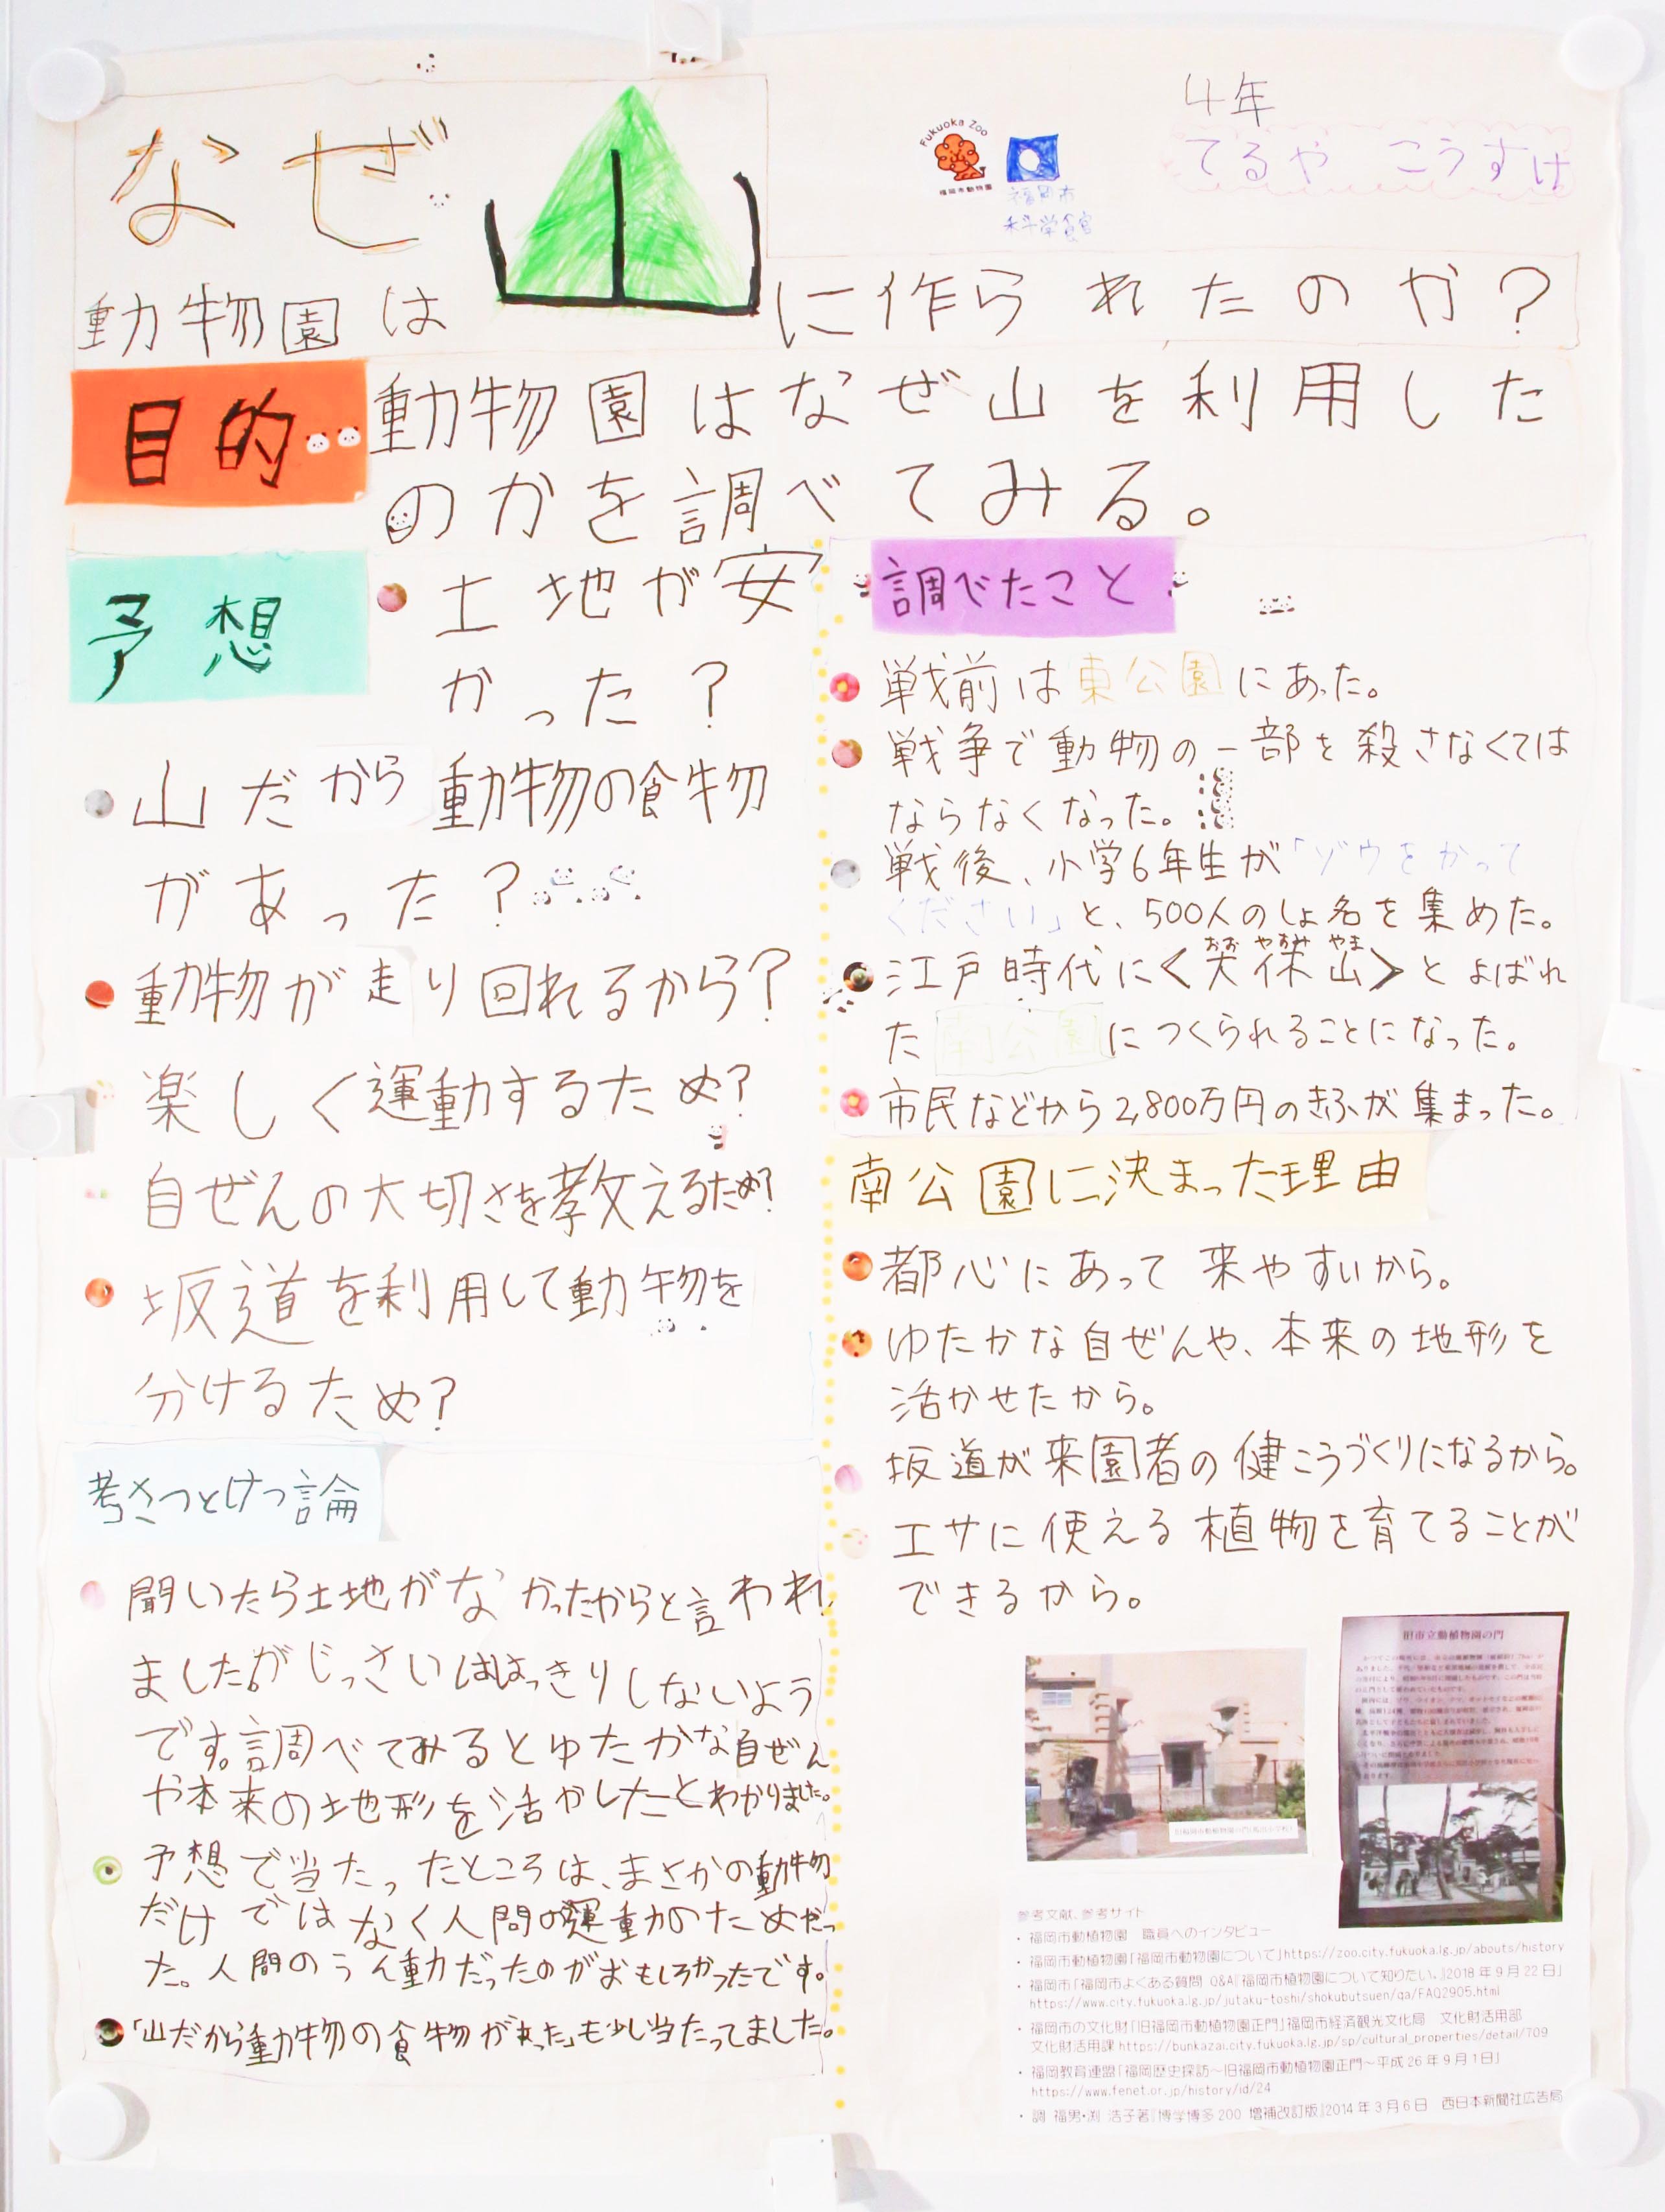 なぜ
動物園は山に作られたのか?
Fukuoka Zoo
福岡市動物園
福岡市
科学館
4年
てるや こうすけ
目的
動物園はなぜ山を利用した
のかを調べてみる。
予想
土地が安
かった?
山だから動物の食物
があった?
動物が走り回れるから?
楽しく運動するため?
自ぜんの大切さを教えるため?
坂道を利用して動物を
分けるため?
考さつとけつ論
聞いたら土地がなかったからと言われ
ましたがじっさいははっきりしないよう
です。調べてみるとゆたかな自ぜん
や本来の地形を活かしたとわかりました。
予想で当たったところは、まさかの動物
だけではなく人間の運動のためだっ
た。人間のうん動だったのがおもしろかったです。
「山だから動物の食物があった」も少し当たってました。
調べたこと
戦前は東公園にあった。
戦争で動物の一部を殺さなくては
ならなくなった。
戦後、小学6年生が「ゾウをかって
ください」と、500人のしょ名を集めた。
おお やすみ やま
江戸時代に<大休山>とよばれ
た南公園につくられることになった。
市民などから2,800万円のきふが集まった。
南公園に決まった理由
都心にあって来やすいから。
ゆたかな自ぜんや、本来の地形を
活かせたから。
坂道が来園者の健こうづくりになるから。
エサに使える植物を育てることが
できるから。
旧市立動植物園の門
参考文献、参考サイト
・福岡市動植物園 職員へのインタビュー
・福岡市動植物園「福岡市動物園について」https://zoo.city.fukuoka.lg.jp/abouts/history
・福岡市「福岡市よくある質問 Q&A『福岡市植物園について知りたい。』2018年9月22日」
https://www.city.fukuoka.lg.jp/jutaku-toshi/shokubutsuen/qa/FAQ2905.html
・福岡市の文化財「旧福岡市動植物園正門」福岡市経済観光文化局 文化財活用部
文化財活用課 https://bunkazai.city.fukuoka.lg.jp/sp/cultural_properties/detail/709
・福岡教育連盟「福岡歴史探訪～旧福岡市動植物園正門～平成26年9月1日」
https://www.fenet.or.jp/history/id/24
・調 福男・渕 浩子著『博学博多200 増補改訂版』2014年3月6日 西日本新聞社広告局